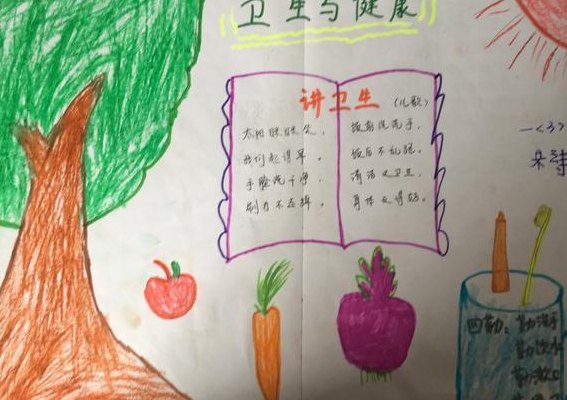 卫生与健康
讲卫生（儿歌）
太阳眯眯笑，
我们起得早。
手脸洗干净，
刷牙不忘掉。
饭前洗洗手，
饭后不乱跑。
清洁又卫生，
身体
得好。
一<3>
四勤：勤
勤饮水
勤